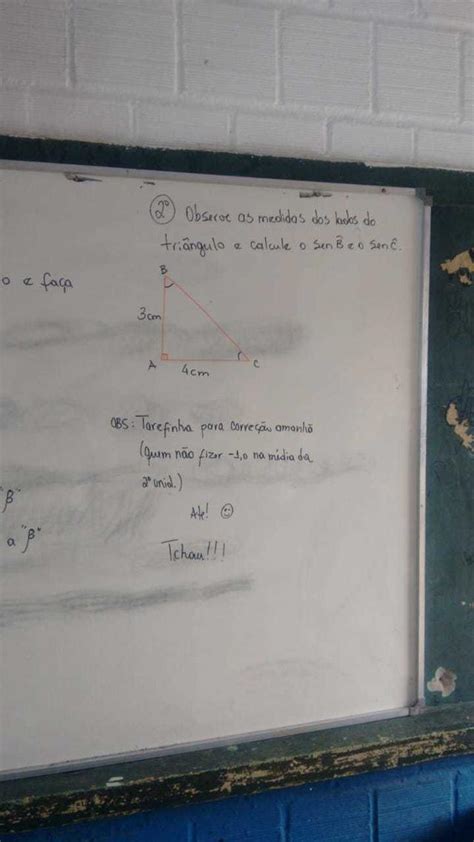 2º Observe as medidas dos lados do
triângulo e calcule o sen B̂ e o sen Ĉ.
o e faça
B
3cm
A
C
4cm
OBS: Tarefinha para correção amanhã
(Quem não fizer -1,0 na média da
2ª unid.)
"β"
Até! ☺
a "β"
Tchau!!!